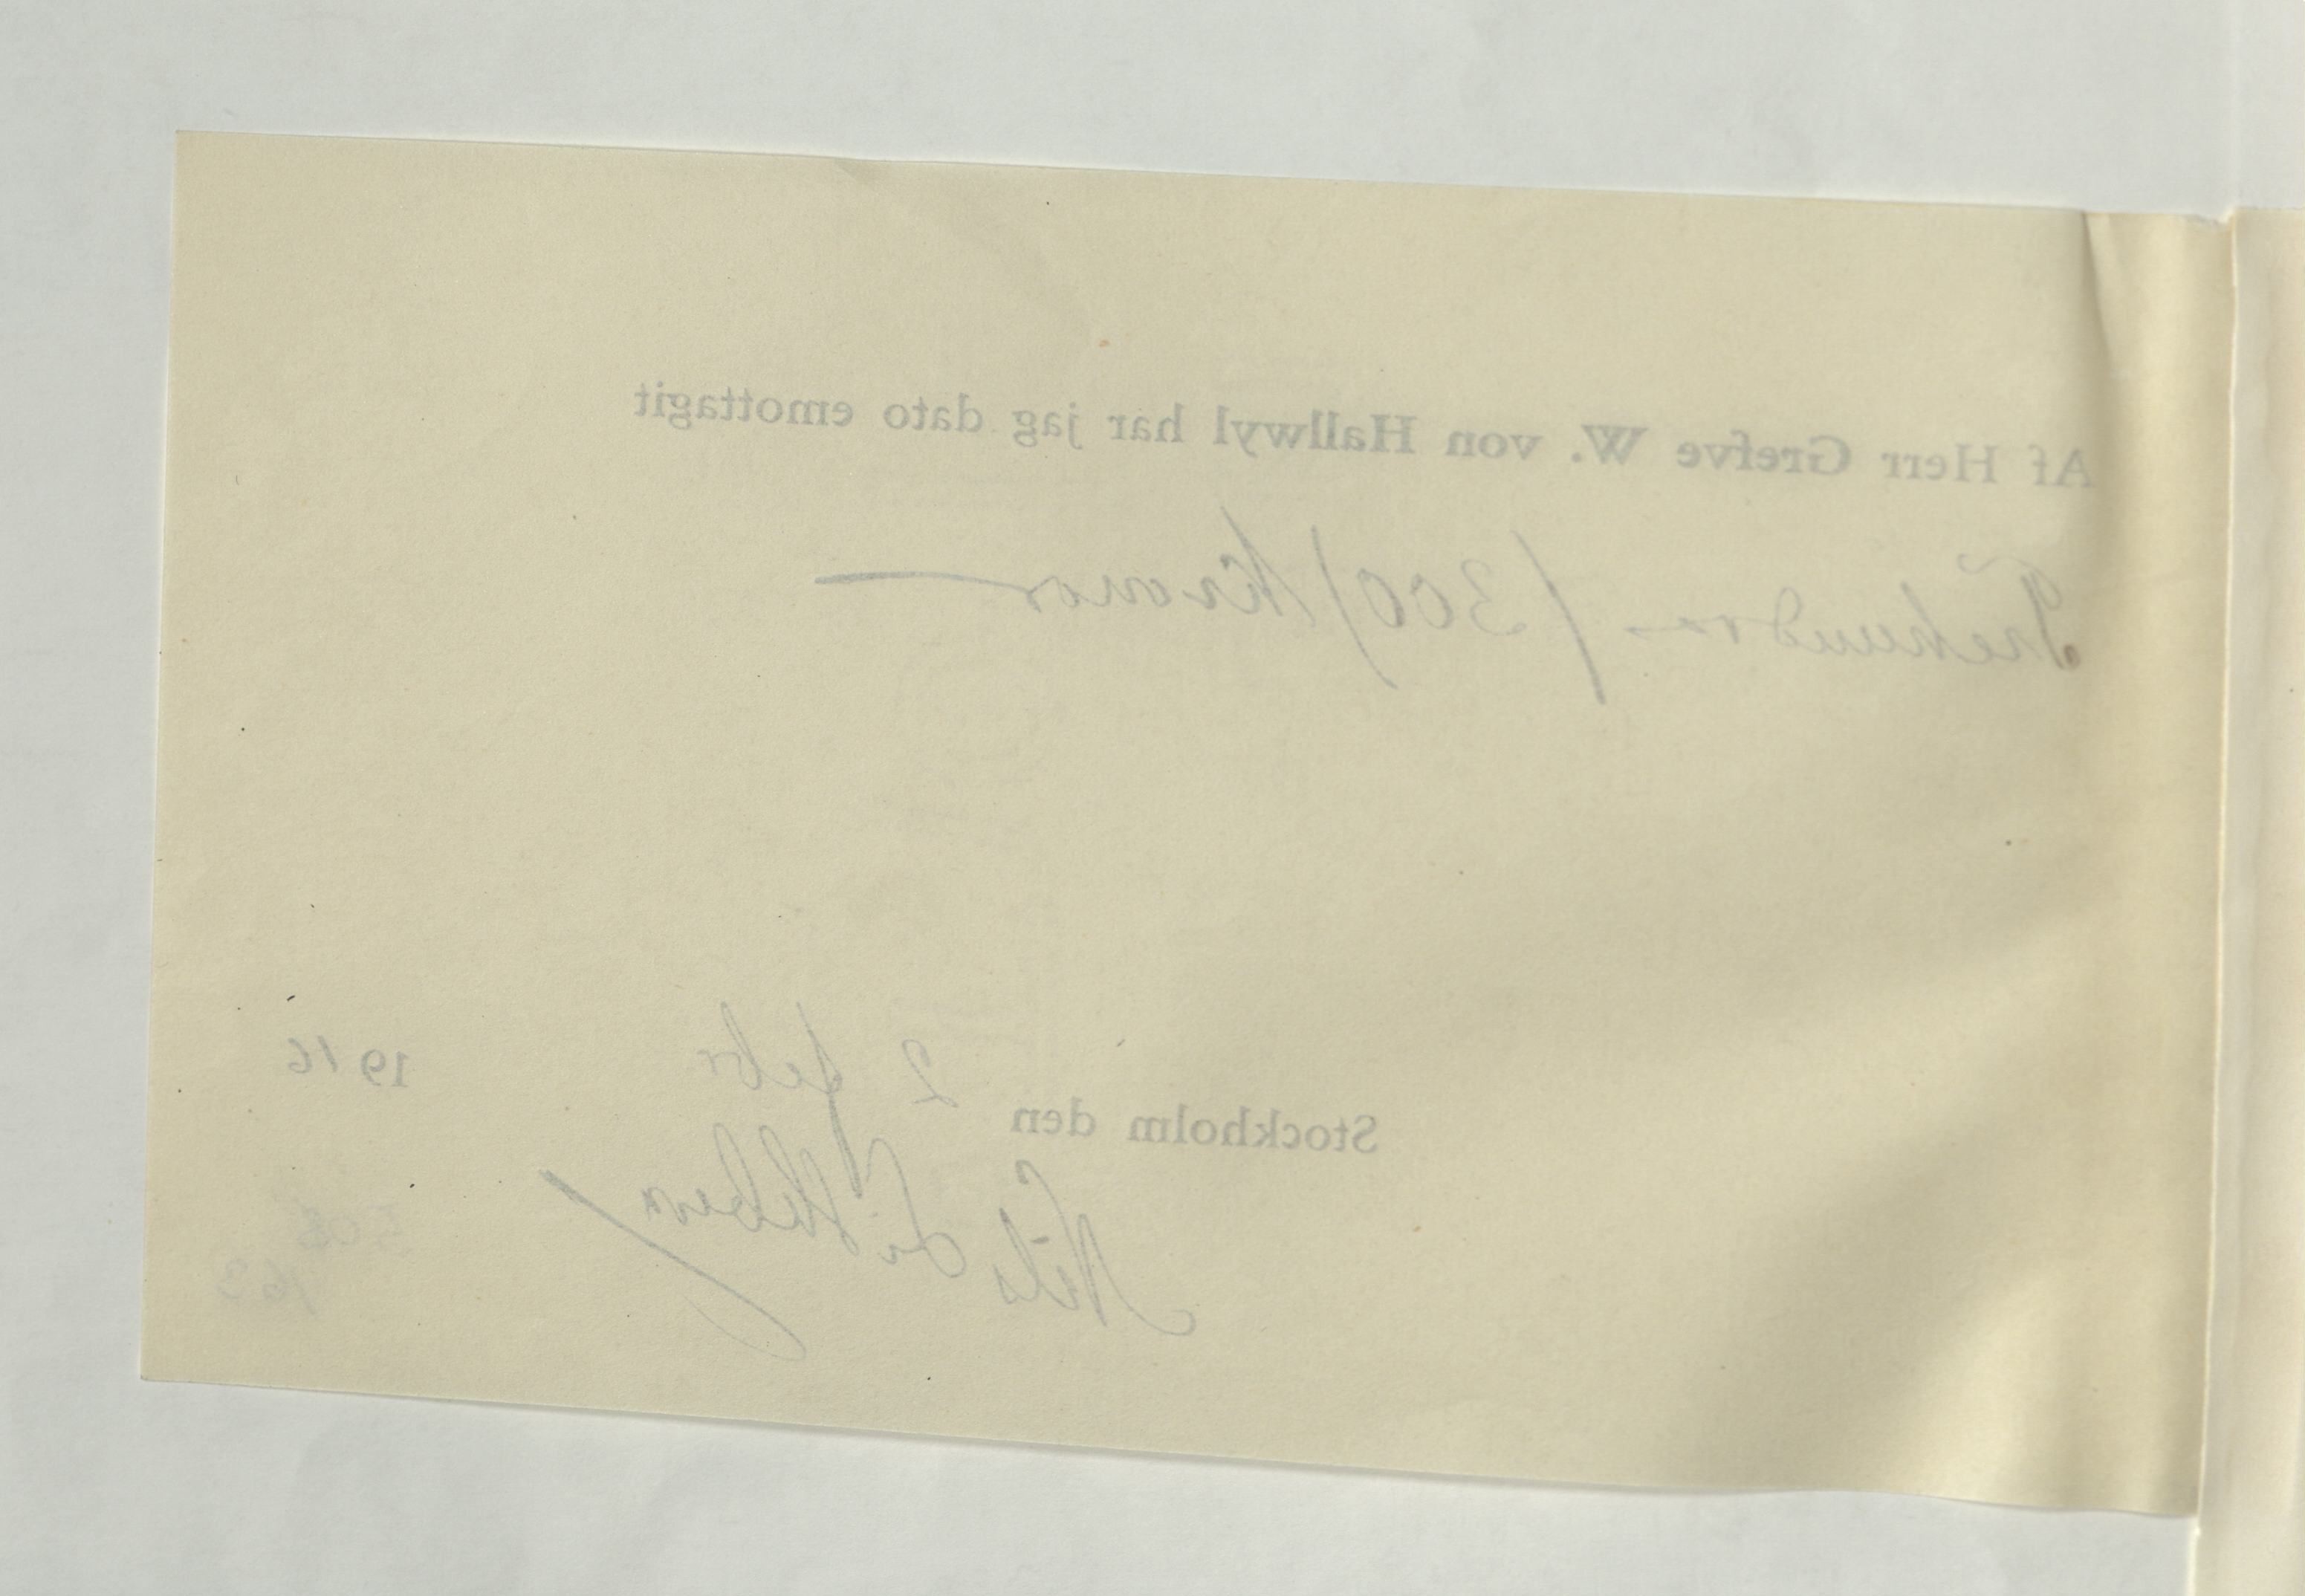 Af Herr Grefve W. von Hallwyl har jag dato emottagit
Trehundra (300) Kronor
Stockholm den 2 febr 1916
Nils
308
163